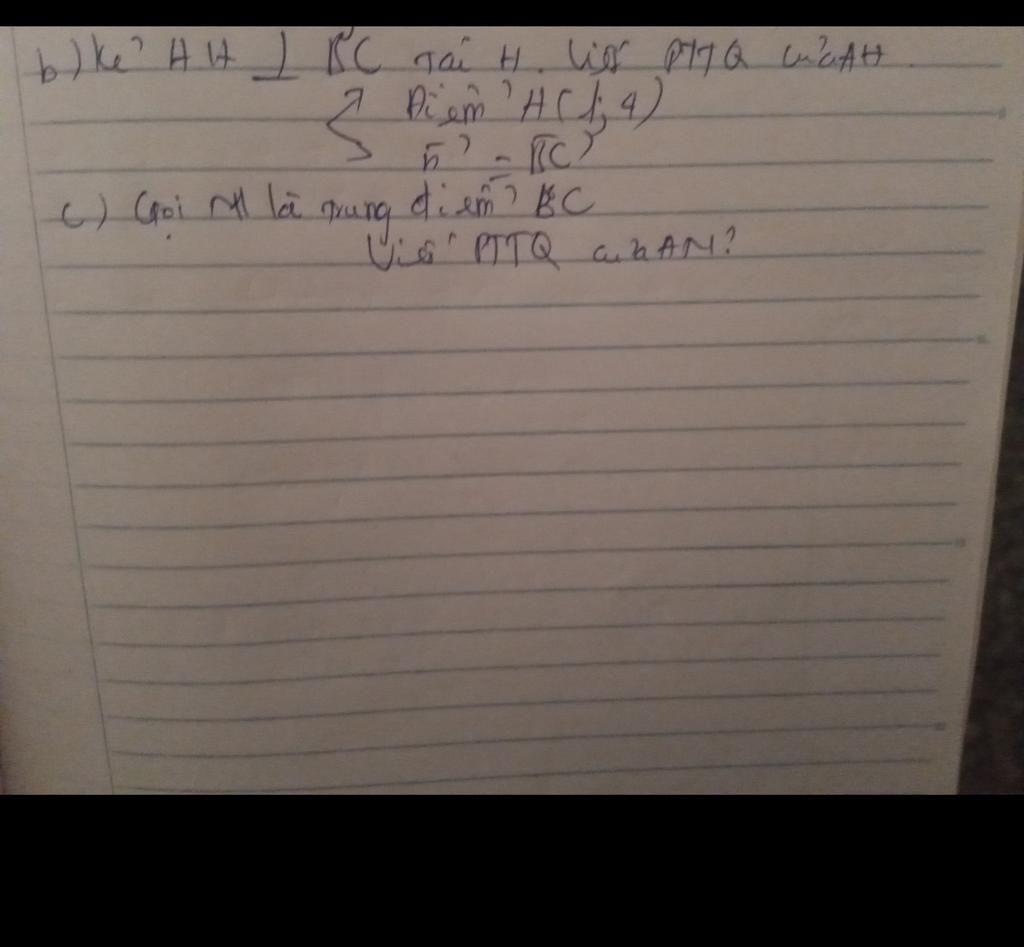 b) Kẻ AH ⊥ BC tại H. Viết PTTQ của AH.
Điểm A(1; 4)
n = BC
c) Gọi M là trung điểm BC
Viết PTTQ của AM?